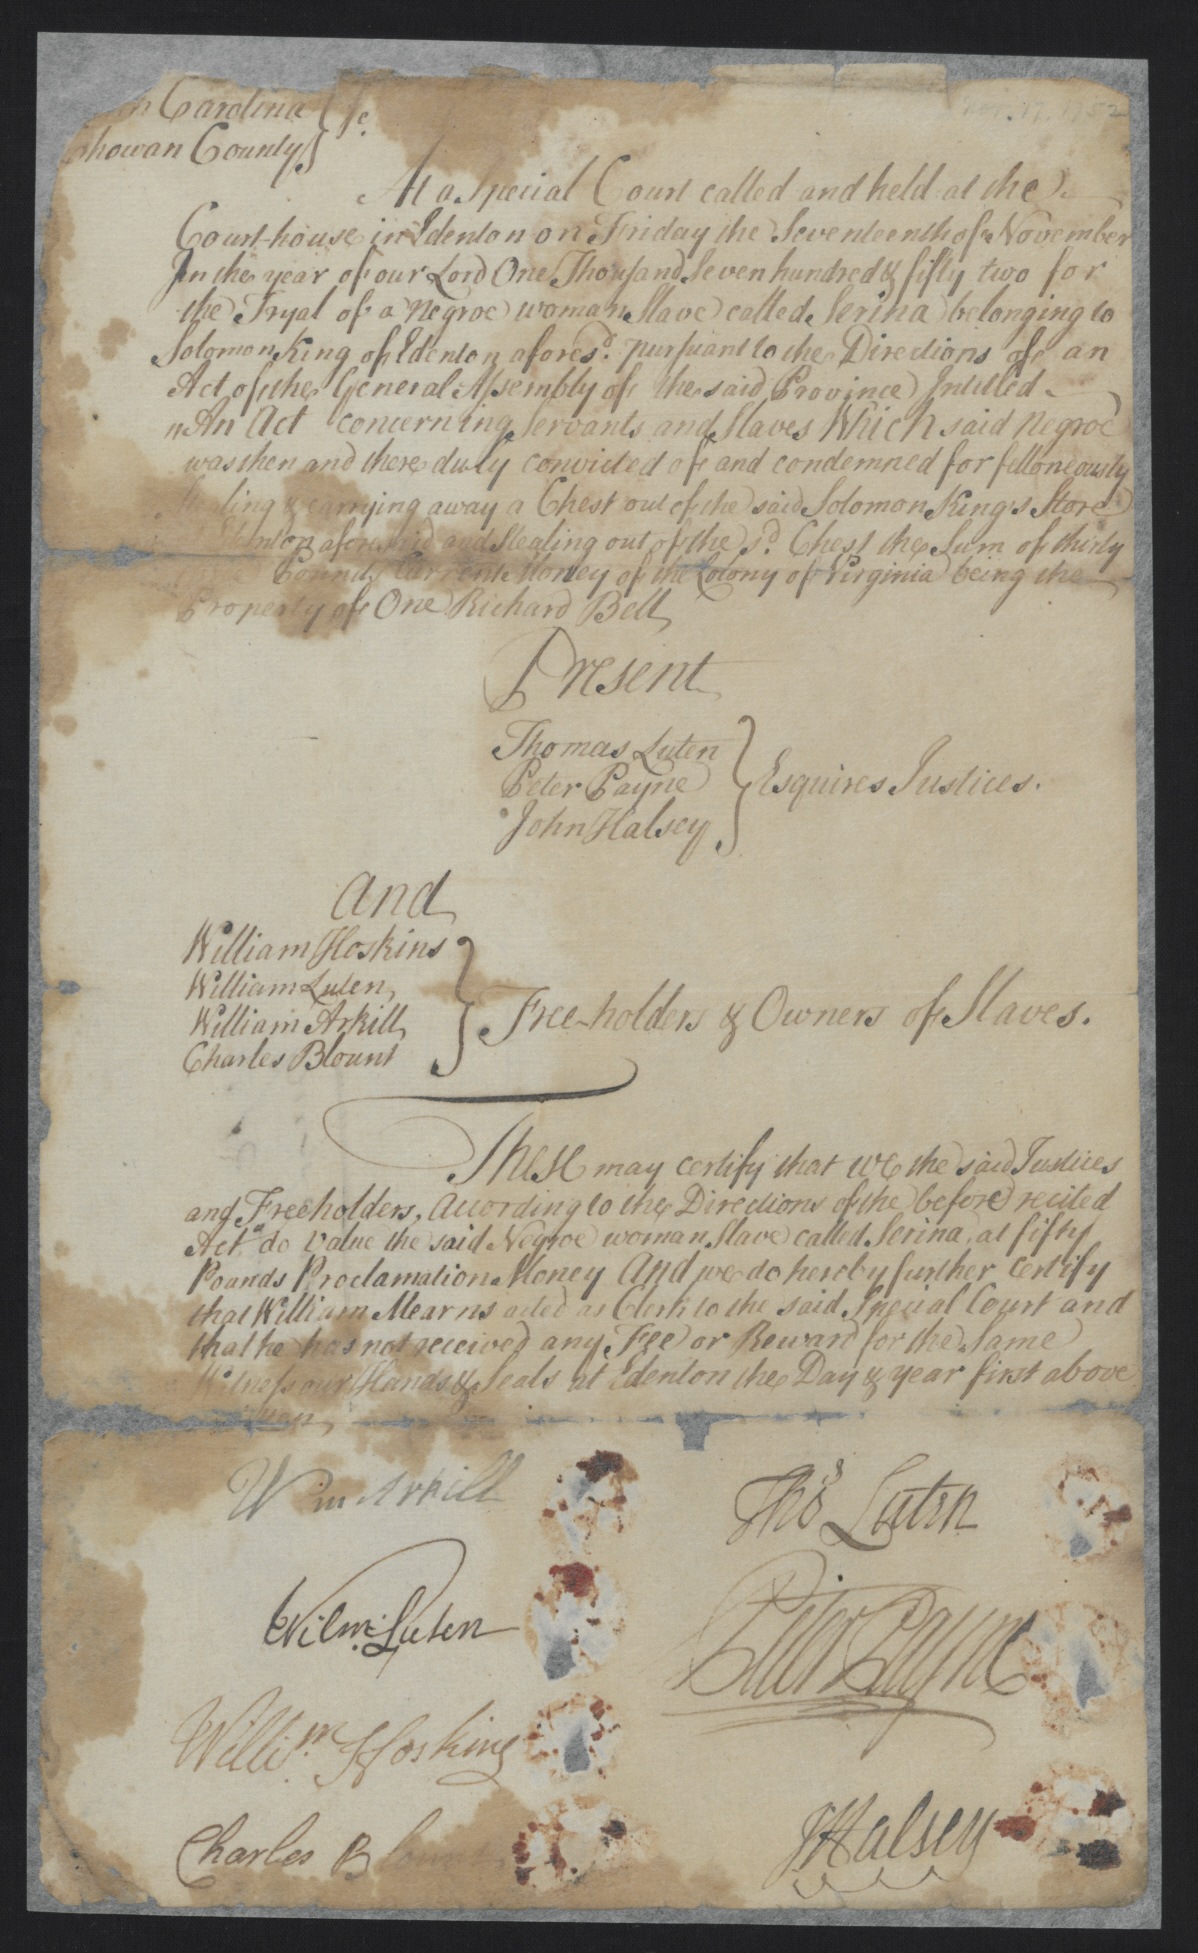 n Carolina } sc.
howan County }
Nov. 17. 1752
At a Special Court called and held at the
Court-house in Edenton on Friday the Seventeenth of November
In the year of our Lord One Thousand Seven hundred & fifty two for
the Tryal of a Negroe woman Slave called Serina belonging to
Solomon King of Edenton afores.d pursuant to the Directions of an
Act of the General Assembly of the said Province Intitled
"An Act concerning Servants and Slaves Which said Negroe
was then and there duly convicted of and condemned for felloneously
Stealing & carrying away a Chest out of the said Solomon King's Store
Edenton aforesaid and Stealing out of the s.d Chest the Sum of thirty
Pounds Current Money of the Colony of Virginia being the
Property of One Richard Bell
Present
Thomas Luten
Peter Payne } Esquires Justices.
John Halsey
And
William Hoskins
William Luten
William Arkill } Free-holders & Owners of Slaves.
Charles Blount
These may certify that we the said Justices
and Freeholders, According to the Directions of the before recited
Act do value the said Negroe woman Slave called Serina, at fifty
Pounds Proclamation Money And we do hereby further Certify
that William Mearns acted as Clerk to the said Special Court and
that he has not received any Fee or Reward for the Same
Witness our Hands & Seals at Edenton the Day & year first above
Wm Arkill
Thos Luten
Wilm Luten
Peter Payne
Willim Hoskins
Charles Blount
JHalsey